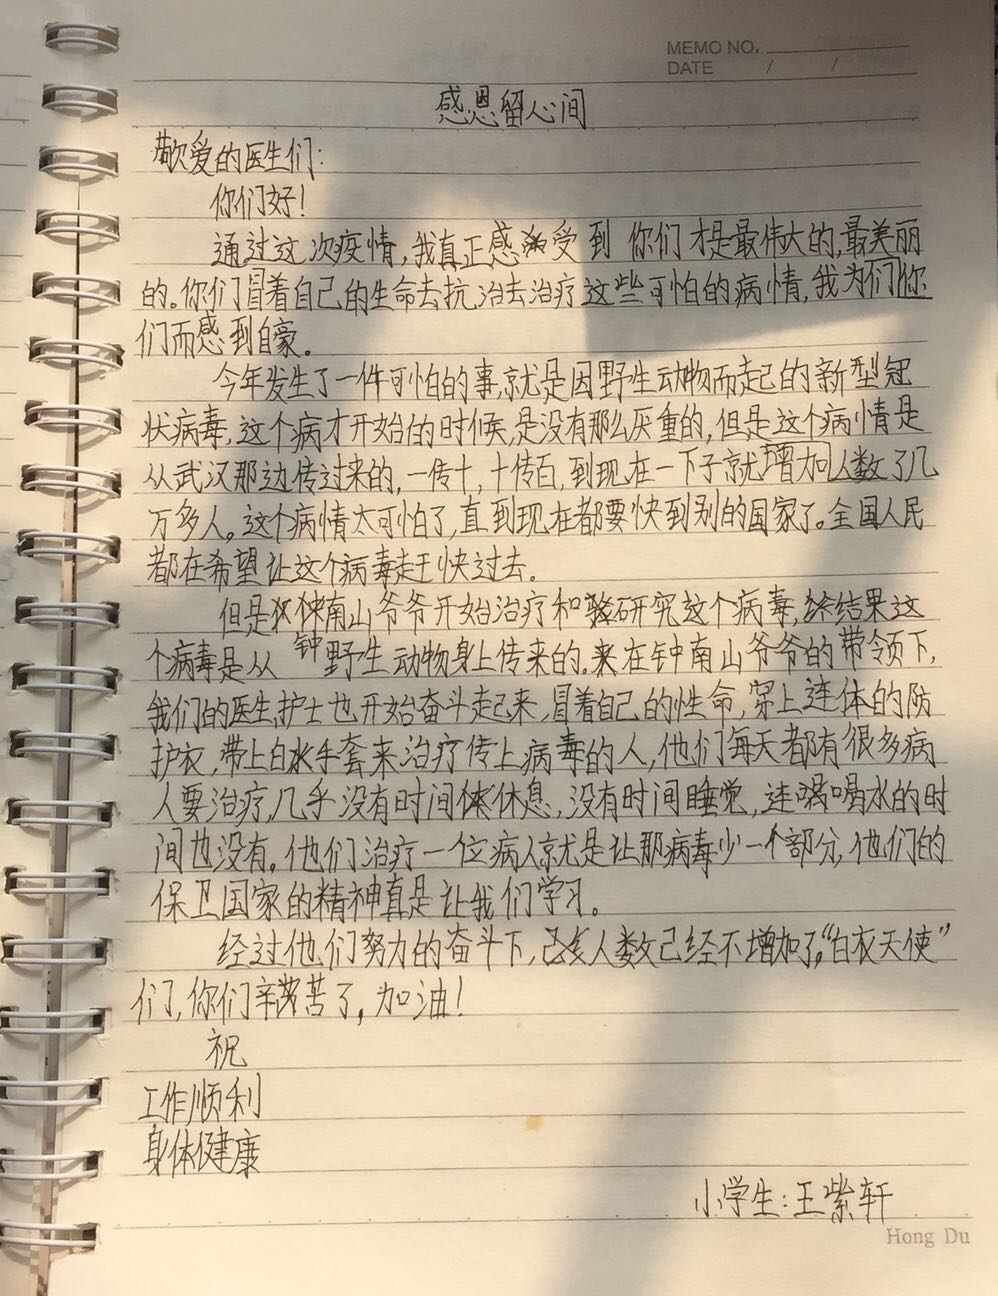 MEMO NO.
DATE / /
感恩留心间
敬爱的医生们:
你们好!
通过这次疫情,我真正感受到 你们才是最伟大的,最美丽
的。你们冒着自己的生命去抗治去治疗这些可怕的病情,我为们你
们而感到自豪。
今年发生了一件可怕的事,就是因野生动物而起的新型冠
状病毒,这个病才开始的时候,是没有那么厌重的,但是这个病情是
从武汉那边传过来的,一传十,十传百,到现在一下子就增加人数了几
万多人。这个病情太可怕了,直到现在都要快到别的国家了。全国人民
都在希望让这个病毒赶快过去。
但是钟南山爷爷开始治疗和研究这个病毒,结果这
个病毒是从野生动物身上传来的。在钟南山爷爷的带领下,
我们的医生,护士也开始奋斗起来,冒着自己的性命,穿上连体的防
护衣,带上白手套来治疗传上病毒的人,他们每天都有很多病
人要治疗,几乎没有时间休息,没有时间睡觉,连喝水的时
间也没有。他们治疗一位病人就是让那病毒少一个部分,他们的
保卫国家的精神真是让我们学习。
经过他们努力的奋斗下,人数已经不增加了。“白衣天使”
们,你们辛苦了,加油!
祝
工作顺利
身体健康
小学生:王紫轩
Hong Du